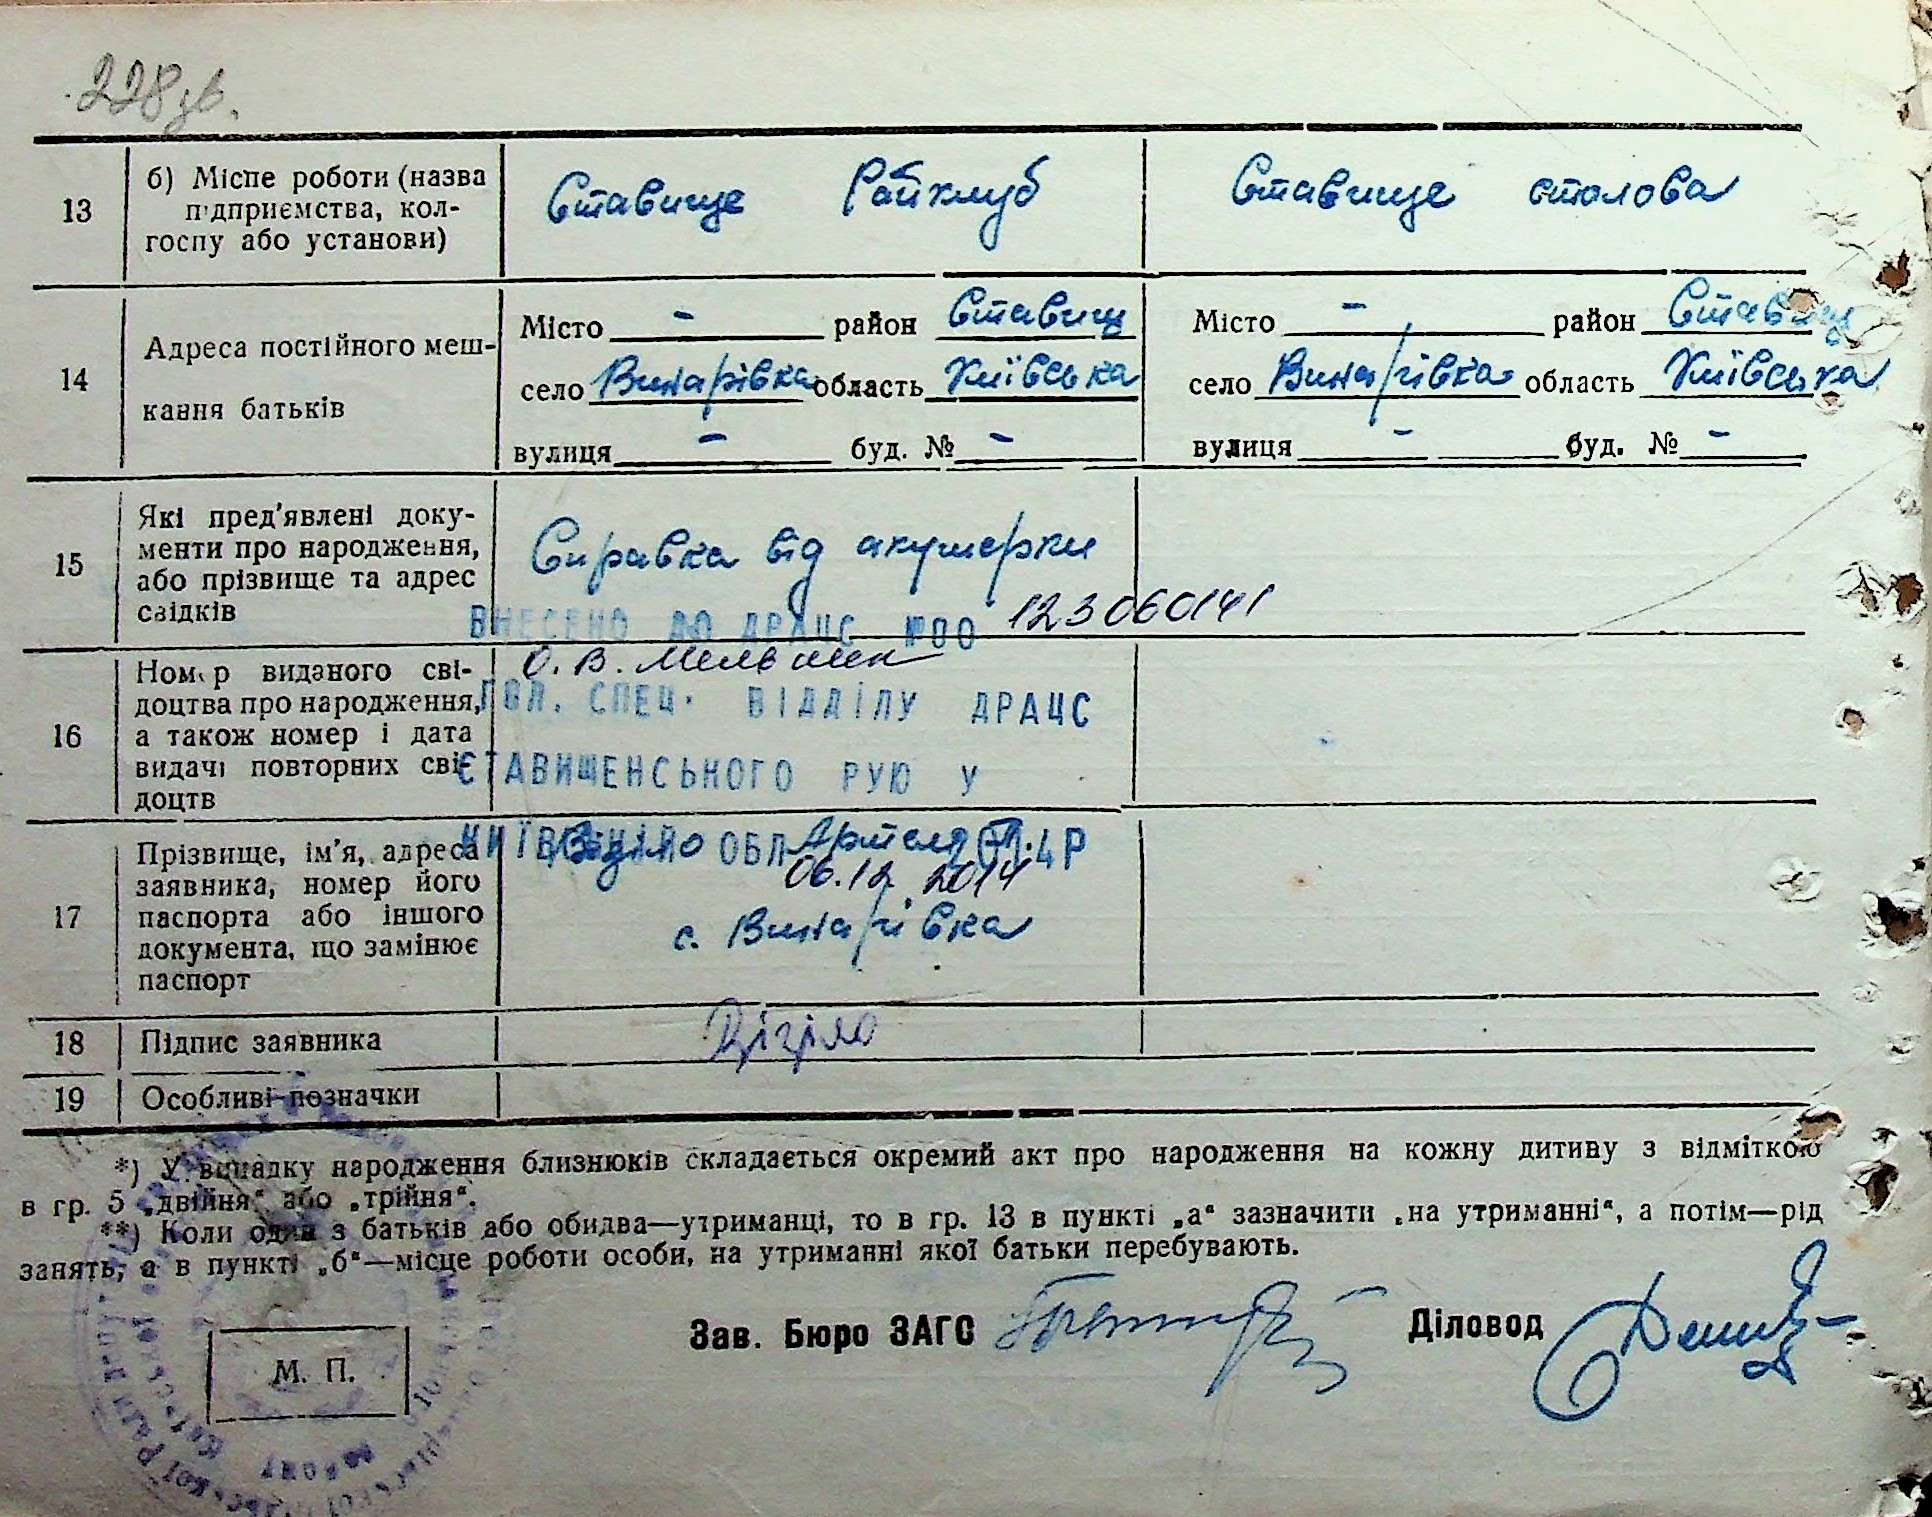 228 зв.
13
б) Місце роботи (назва
підприємства, кол-
госпу або установи)
Ставище Райклуб
Ставище столова
14
Адреса постійного меш-
кання батьків
Місто - район Ставищ
село Винарівка область Київська
вулиця - буд. № -
Місто - район Ставищ
село Винарівка область Київська
вулиця - буд. № -
15
Які пред'явлені доку-
менти про народження,
або прізвище та адрес
свідків
Справка від акушерки
ВНЕСЕНО ДО ДРАЦС №00 123060141
16
Номер виданого сві-
доцтва про народження,
а також номер і дата
видачі повторних сві-
доцтв
О. В. Мельник
ГОЛ. СПЕЦ. ВІДДІЛУ ДРАЦС
СТАВИЩЕНСЬКОГО РУЮ У
17
Прізвище, ім'я, адреса
заявника, номер його
паспорта або іншого
документа, що замінює
паспорт
ОБЛ
06.12 2014
с. Винарівка
18
Підпис заявника
19
Особливі позначки
*) У випадку народження близнюків складається окремий акт про народження на кожну дитину з відміткою
в гр. 5 „двійня“ або „трійня“.
**) Коли один з батьків або обидва—утриманці, то в гр. 13 в пункті „а“ зазначити „на утриманні“, а потім—рід
занять, а в пункті „б“—місце роботи особи, на утриманні якої батьки перебувають.
Зав. Бюро ЗАГС
Діловод
М. П.